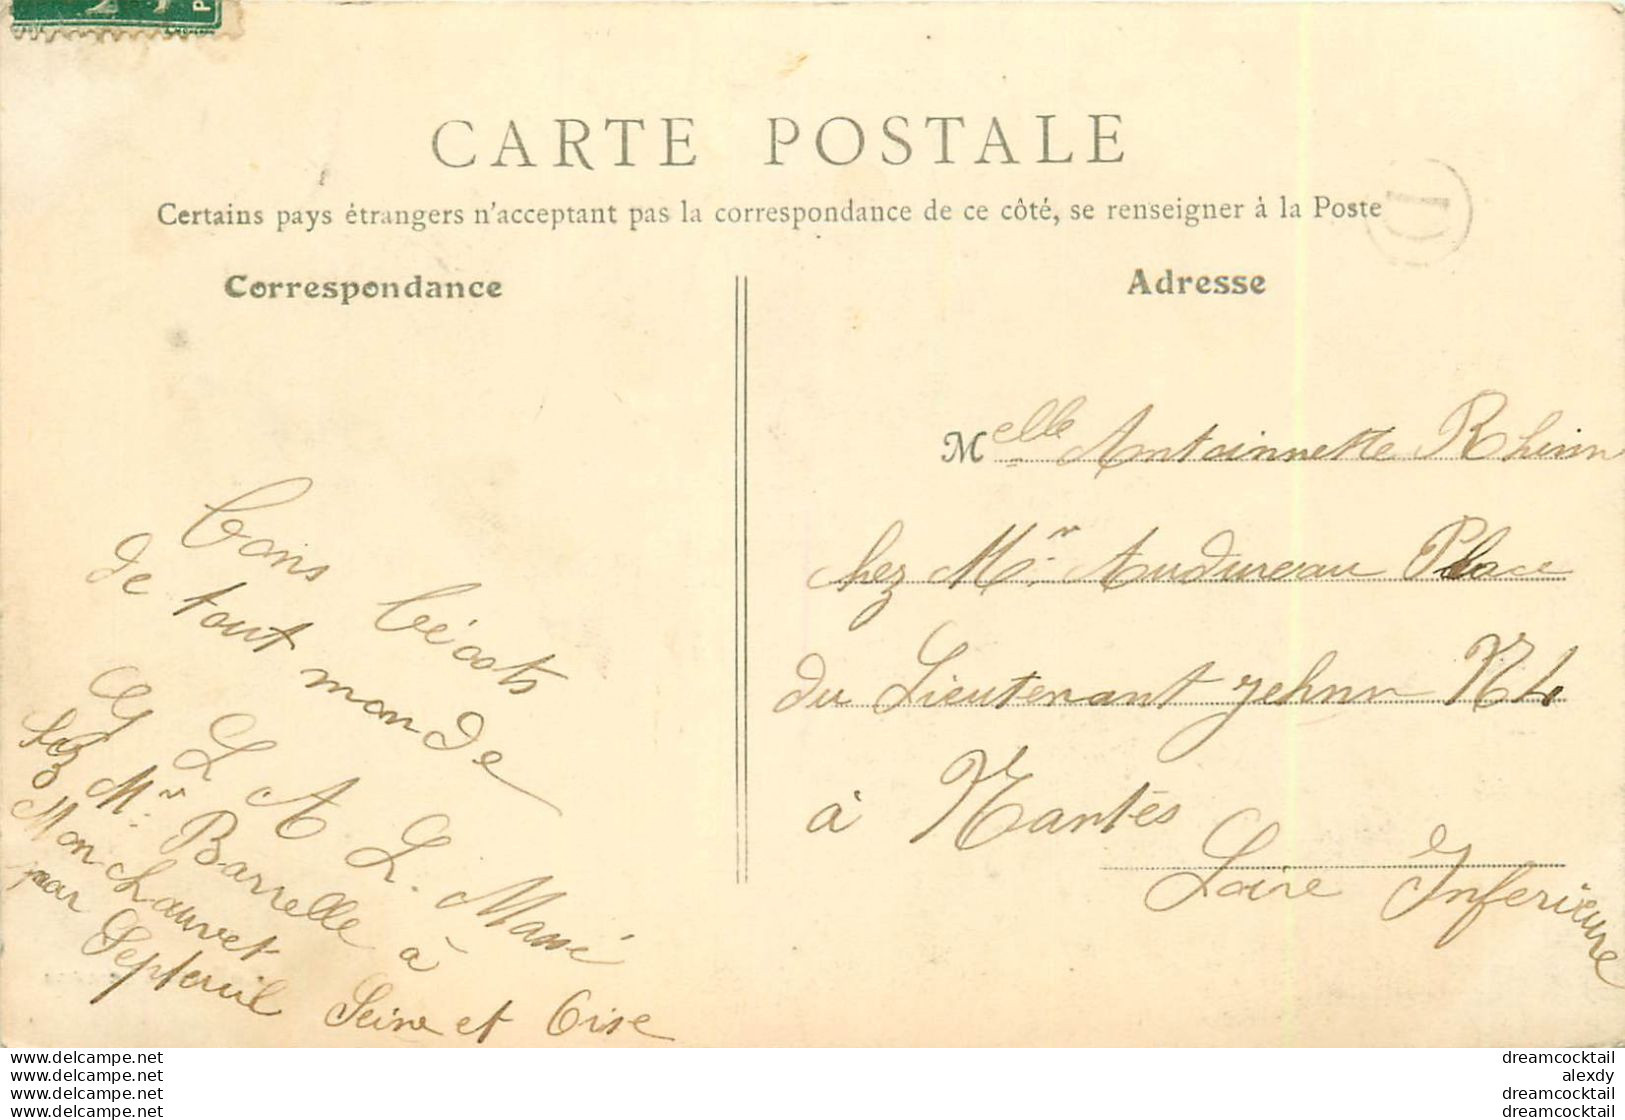 CARTE POSTALE
Certains pays étrangers n'acceptant pas la correspondance de ce côté, se renseigner à la Poste
Correspondance
Adresse
bons bécots
de tout monde
G L A L. Massé
chez Mr. Barrelle à
Monchauvet
par Septeuil Seine et Oise
Melle Antoinnette Rhinn
chez Mr. Audureau Place
du Lieutenant Jehnn
à Nantes
Loire Inferieure
www.delcampe.net
www.delcampe.net
www.delcampe.net
www.delcampe.net
dreamcocktail
alexdy
dreamcocktail
dreamcocktail